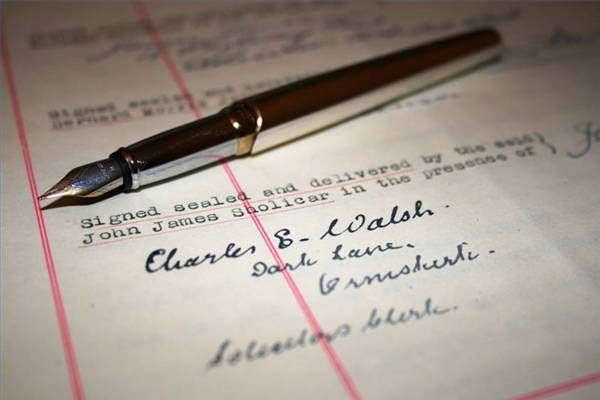 Signed sealed and
Bernard
Signed sealed and delivered by the said }
John James Sholicar in the presence of }
Charles E. Walsh.
Dark Lane.
Ormskirk.
Solicitors Clerk.